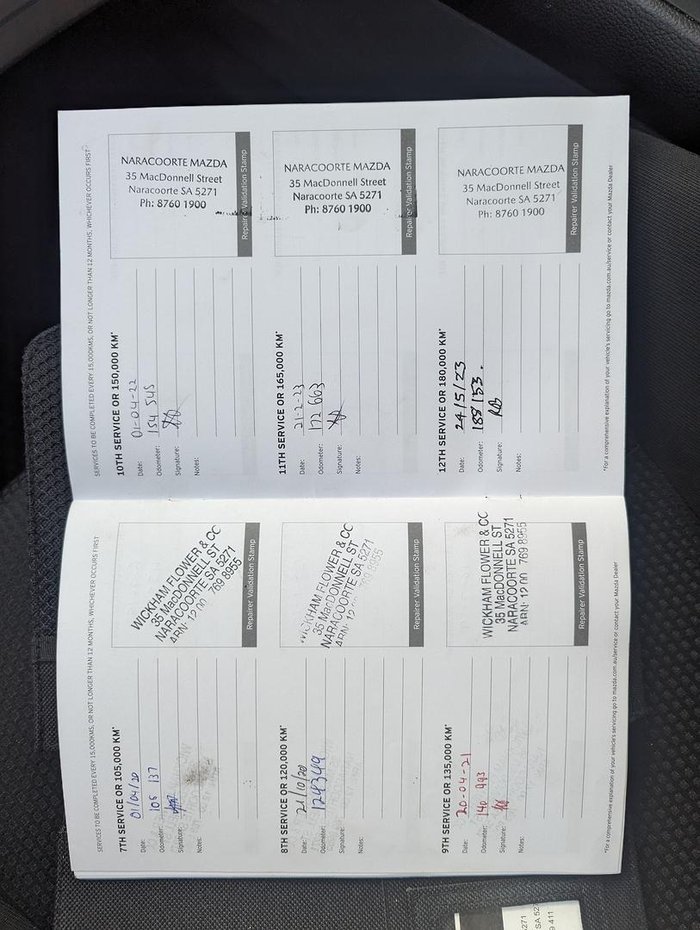 SERVICES TO BE COMPLETED EVERY 15,000KMS, OR NOT LONGER THAN 12 MONTHS, WHICHEVER OCCURS FIRST
7TH SERVICE OR 105,000 KM*
Date: 01/04/20
Odometer: 105 137
Signature:
Notes:
WICKHAM FLOWER & CO
35 MacDONNELL ST
NARACOORTE SA 5271
ABN: 12 00 769 8955
Repairer Validation Stamp
8TH SERVICE OR 120,000 KM*
Date: 21/10/20
Odometer: 124349
Signature:
Notes:
WICKHAM FLOWER & CO
35 MacDONNELL ST
NARACOORTE SA 5271
ABN: 12 769 8955
Repairer Validation Stamp
9TH SERVICE OR 135,000 KM*
Date: 20-04-21
Odometer: 140 993
Signature:
Notes:
WICKHAM FLOWER & CC
35 MacDONNELL ST
NARACOORTE SA 5271
ABN: 12 00 769 8955
Repairer Validation Stamp
*For a comprehensive explanation of your vehicle's servicing go to mazda.com.au/service or contact your Mazda Dealer
SERVICES TO BE COMPLETED EVERY 15,000KMS, OR NOT LONGER THAN 12 MONTHS, WHICHEVER OCCURS FIRST
10TH SERVICE OR 150,000 KM*
Date: 01-04-22
Odometer: 154 545
Signature:
Notes:
NARACOORTE MAZDA
35 MacDonnell Street
Naracoorte SA 5271
Ph: 8760 1900
Repairer Validation Stamp
11TH SERVICE OR 165,000 KM*
Date: 21-2-23
Odometer: 172 663
Signature:
Notes:
NARACOORTE MAZDA
35 MacDonnell Street
Naracoorte SA 5271
Ph: 8760 1900
Repairer Validation Stamp
12TH SERVICE OR 180,000 KM*
Date: 24/5/23
Odometer: 188153.
Signature:
Notes:
NARACOORTE MAZDA
35 MacDonnell Street
Naracoorte SA 5271
Ph: 8760 1900
Repairer Validation Stamp
*For a comprehensive explanation of your vehicle's servicing go to mazda.com.au/service or contact your Mazda Dealer